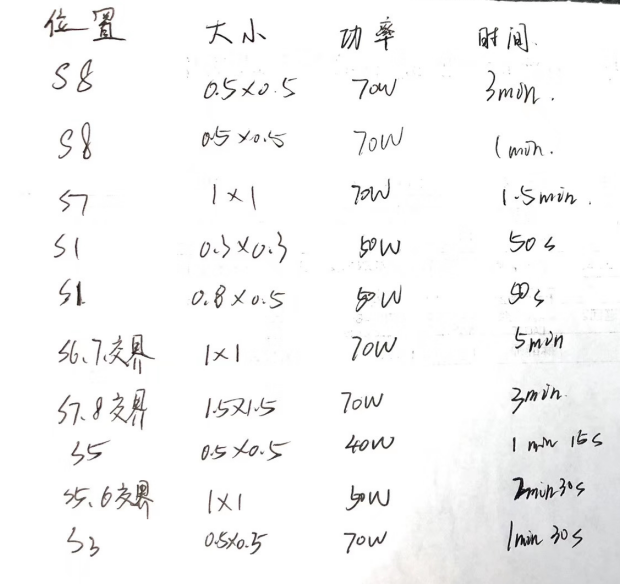 位置 大小 功率 时间.
S8 0.5×0.5 70W 3min.
S8 0.5×0.5 70W 1min.
S7 1×1 70W 1.5min.
S1 0.3×0.3 50W 50s
S1 0.8×0.5 50W 50s
S6.7.交界 1×1 70W 5min
S7.8交界 1.5×1.5 70W 3min.
S5 0.5×0.5 40W 1min 15s
S5.6交界 1×1 50W 2min30s
S3 0.5×0.5 70W 1min 30s